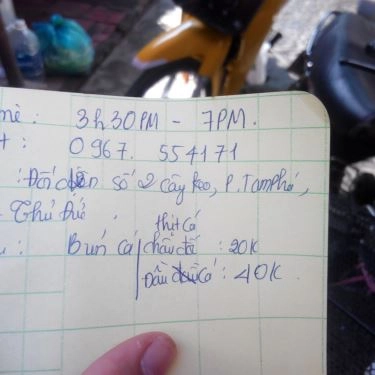 mè: 3h30PM - 7PM.
t: 0967. 554171
: Đối diện số 2 cây keo, P. Tam Phú,
- Thủ Đức.
thịt Cá
: Bún cá chấu đế : 20K
Đầu cá : 40K